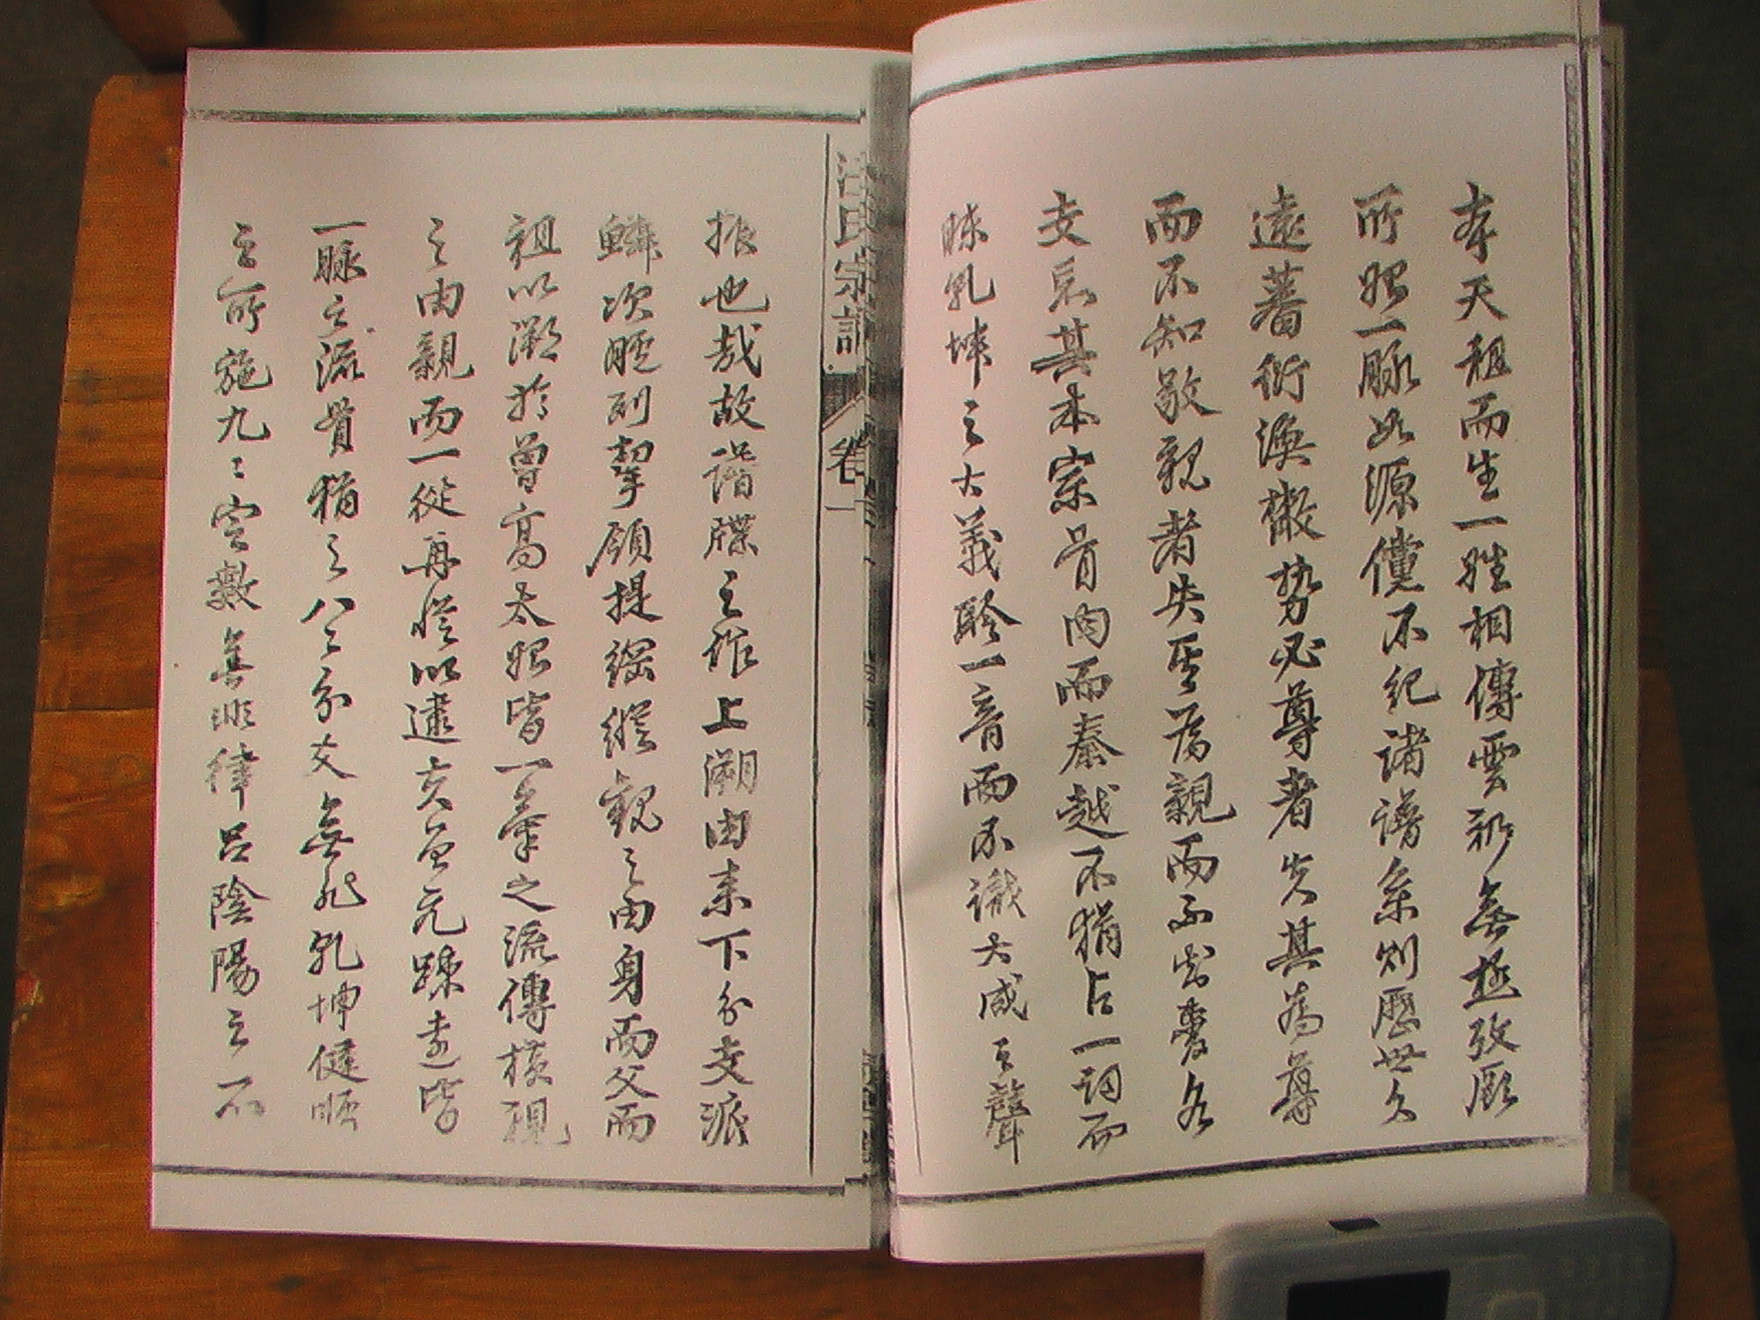 本天祖而生一姓相傳雲礽無極攷厥
所始一脉如源儻不紀諸譜系則歷世久
遠蕃衍渙散势必尊者失其為尊
而不知敬親者失其為親而不知愛各
支忘其本宗骨肉而秦越不猶占一詞而
昧乳坤之大義聆一音而不識大成之聲
振也哉故譜牒之作上溯由来下分支派
鱗次胪列挈領提綱縱觀之由身而父而
祖以溯於曾高太始皆一氣之流傳橫視
之由親而一從再從以逮亥元踈遠皆
一脉之流貫猶之八之分爻無非乳坤健順
之所施九之定數無非律呂陰陽之不
汪氏宗譜
卷一